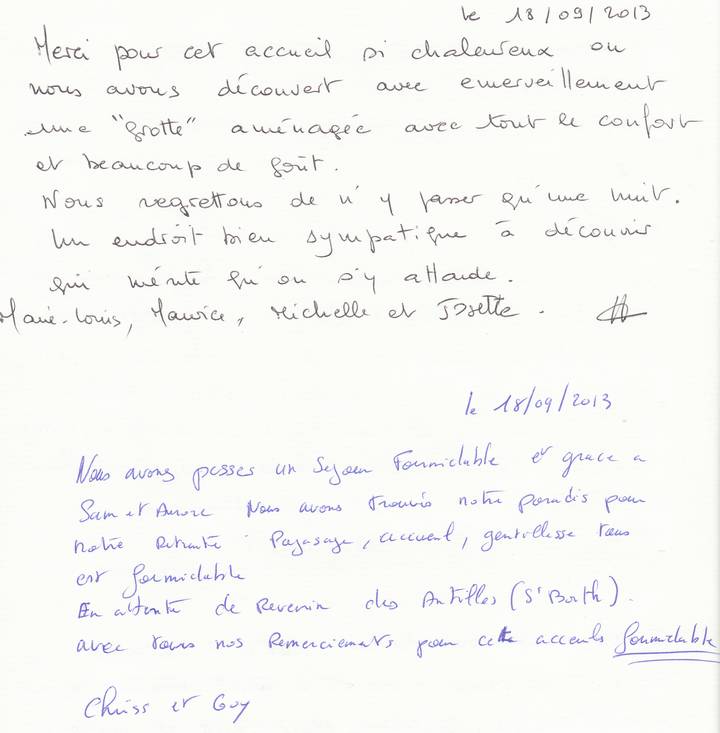 le 18/09/2013
Merci pour cet accueil si chaleureux ou
nous avons découvert avec emerveillement
une "grotte" aménagée avec tout le confort
et beaucoup de goût.
Nous regrettons de n'y passer qu'une nuit.
Un endroit bien sympatique à découvrir
qui mérite qu'on s'y attarde.
Marie-Louis, Maurice, Michelle et Josette.
le 18/09/2013
Nous avons passes un Sejour Formidable et grace a
Sam et Aurore Nous avons trouvés notre paradis pour
notre Retraite. Paysage, accueil, gentillesse tous
est formidable
En attente de Revenir des Antilles (St Barth).
avec tous nos Remerciements pour cet accueils formidable
Chriss et Guy